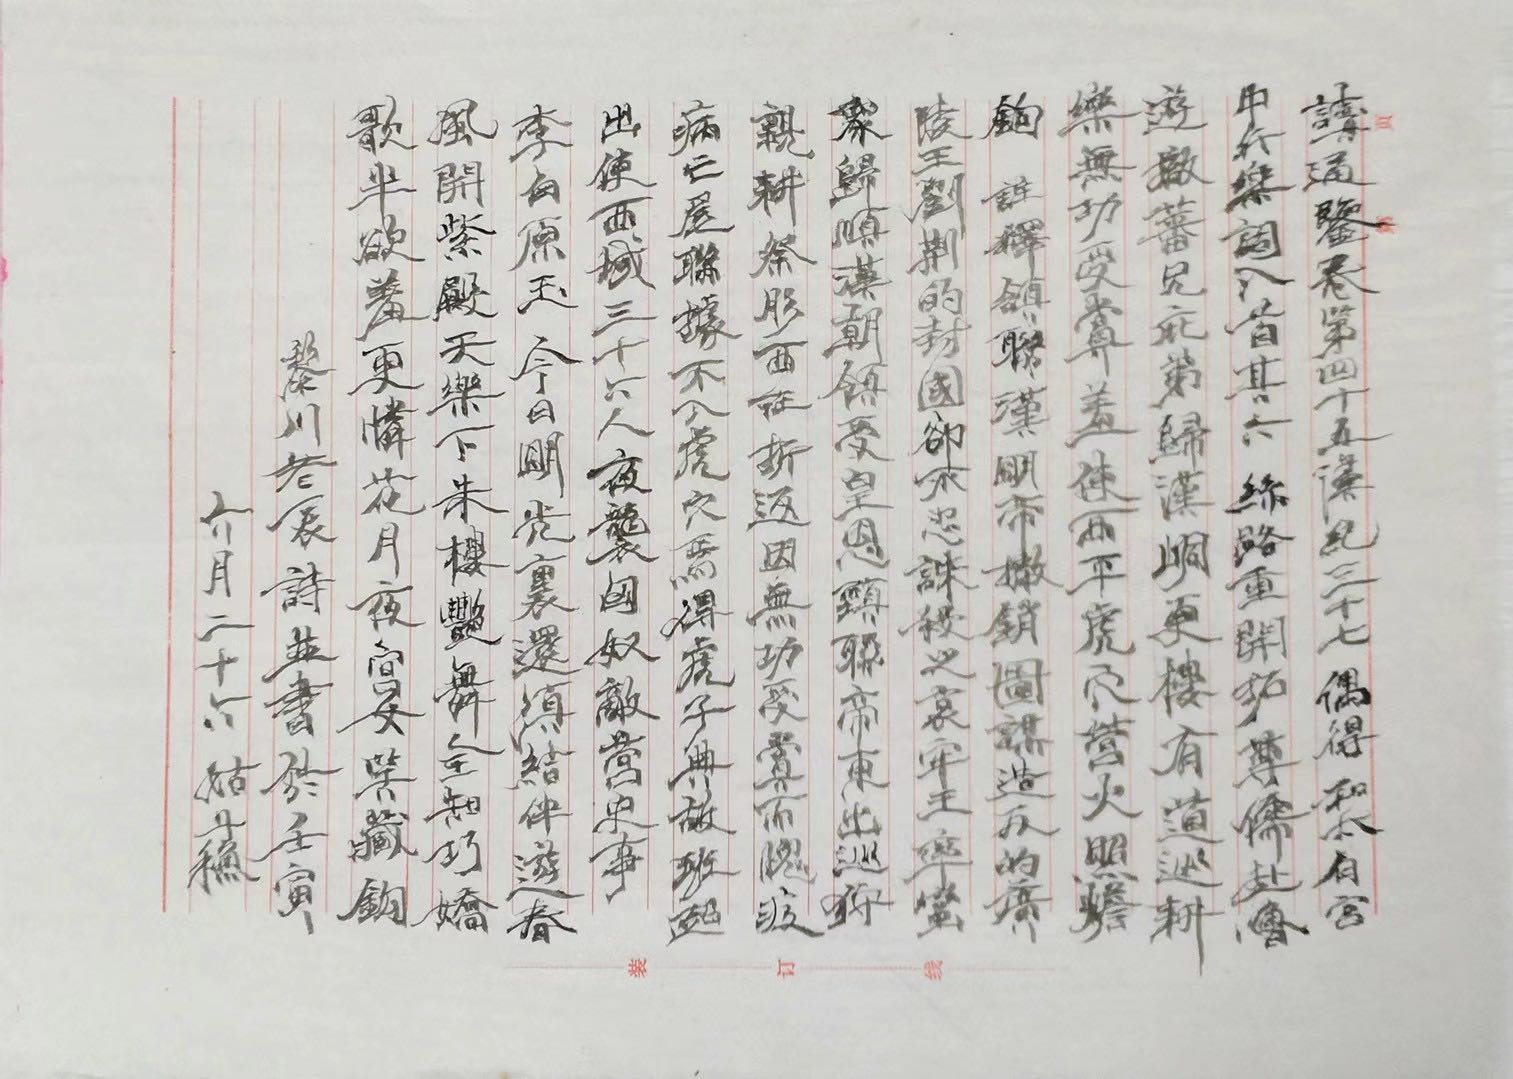 讀通鑒卷第四十五漢紀三十七 偶得 和太白宮
中行樂詞八首其六 絲路重開拓尊儒赴魯
遊撤藩兄庇弟歸漢峒更樓有道巡耕
樂無功受賞羞使西平虎穴營火照
鉤 註釋頷聯漢明帝撤銷圖謀造反的廣
陵王劉荊的封國卻不忍誅殺之哀牢王率蠻
眾歸順漢朝領受皇恩頸聯帝東出巡狩
親耕祭肜西征折返因無功受賞而愧疚
病亡尾聯據不入虎穴焉得虎子典故班超
出使西域三十六人夜襲匈奴敵營史事
李白原玉 今日明光裏還須結伴遊春
風開紫殿天樂下朱樓艷舞全知巧嬌
歌半欲羞更憐花月夜宮女笑藏鉤
黎川 詩並書於壬寅
六月二十六 姑蘇
页
第
装 订 线